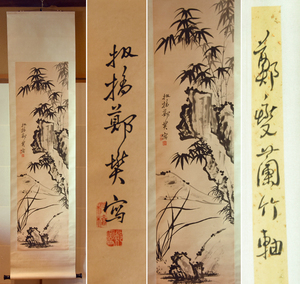 板橋鄭燮寫
板橋鄭燮寫
板橋鄭燮寫
鄭燮蘭竹軸